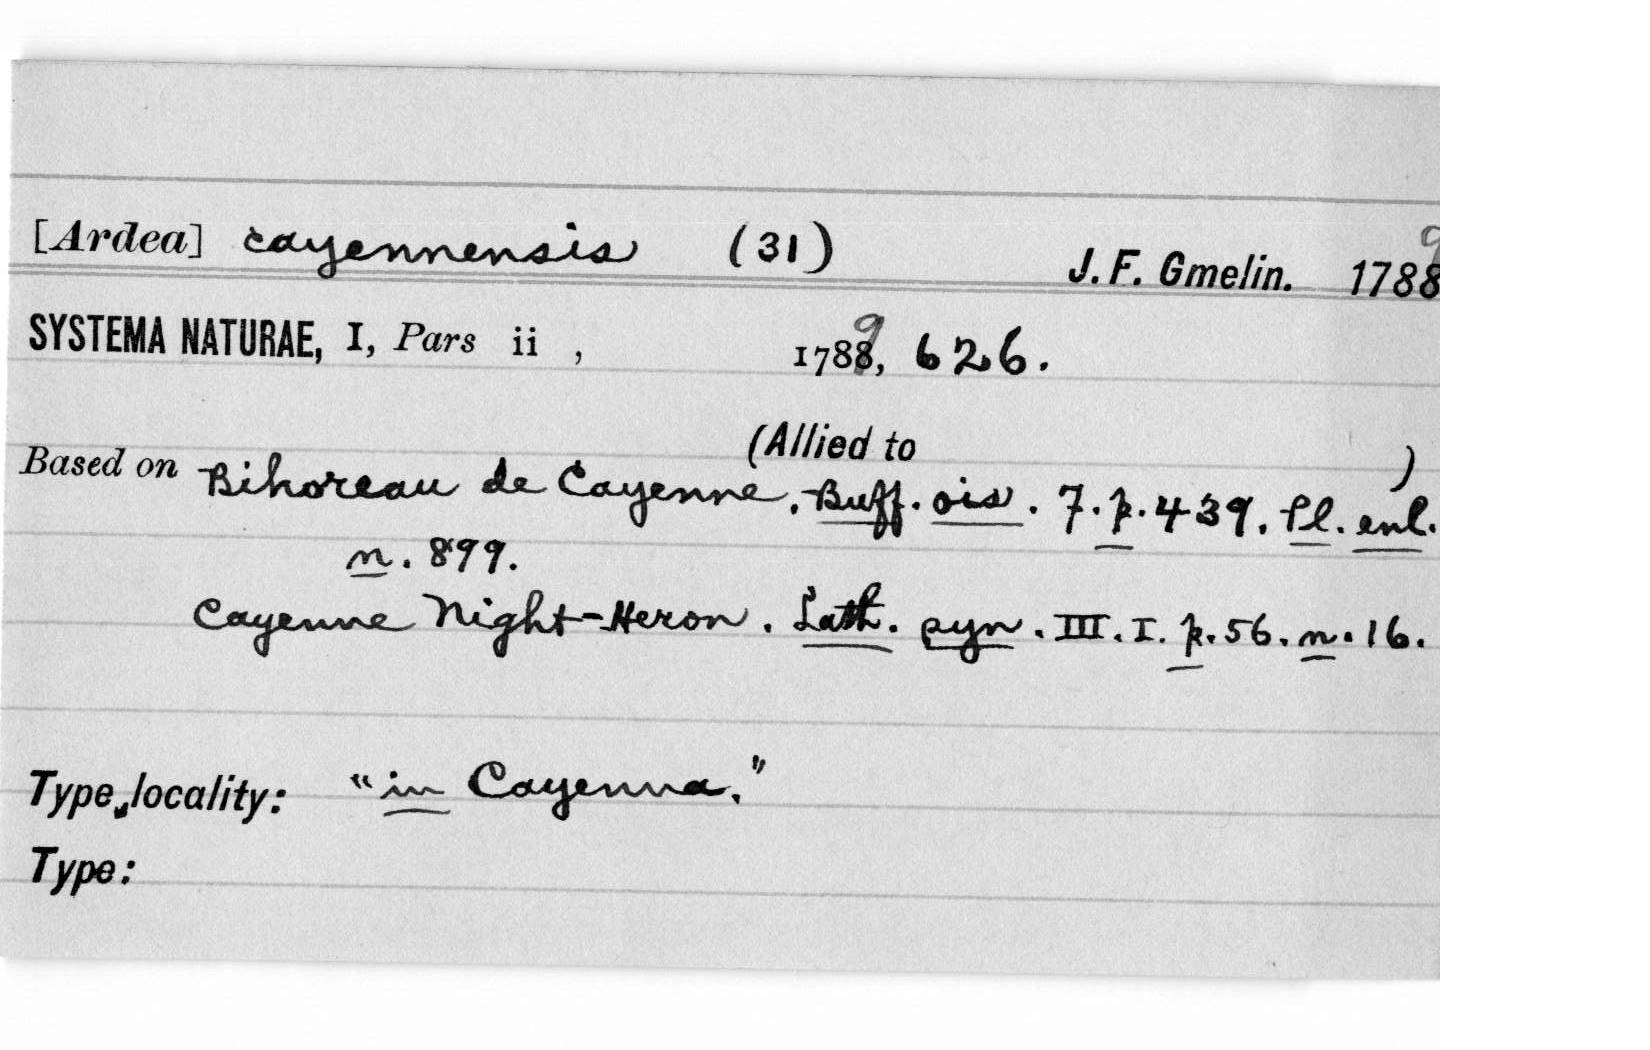 [Ardea] cayennensis (31) J. F. Gmelin. 1788 9
SYSTEMA NATURAE, I, Pars ii , 1788 9, 626.
(Allied to )
Based on Bihoreau de Cayenne. Buff. ois. 7. p. 439. Pl. enl.
n. 899.
Cayenne Night-Heron. Lath. syn. III. I. p. 56. n. 16.
Type locality: "in Cayenna."
Type: